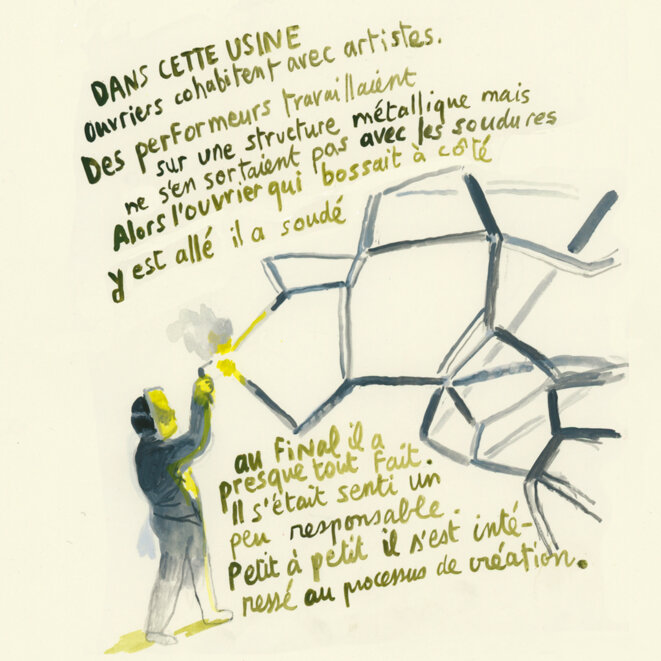 DANS CETTE USINE
ouvriers cohabitent avec artistes.
Des performeurs travaillaient
sur une structure métallique mais
ne s'en sortaient pas avec les soudures
Alors l'ouvrier qui bossait à côté
y est allé il a soudé
au final il a
presque tout fait.
Il s'était senti un
peu responsable.
Petit à petit il s'est inté-
ressé au processus de création.